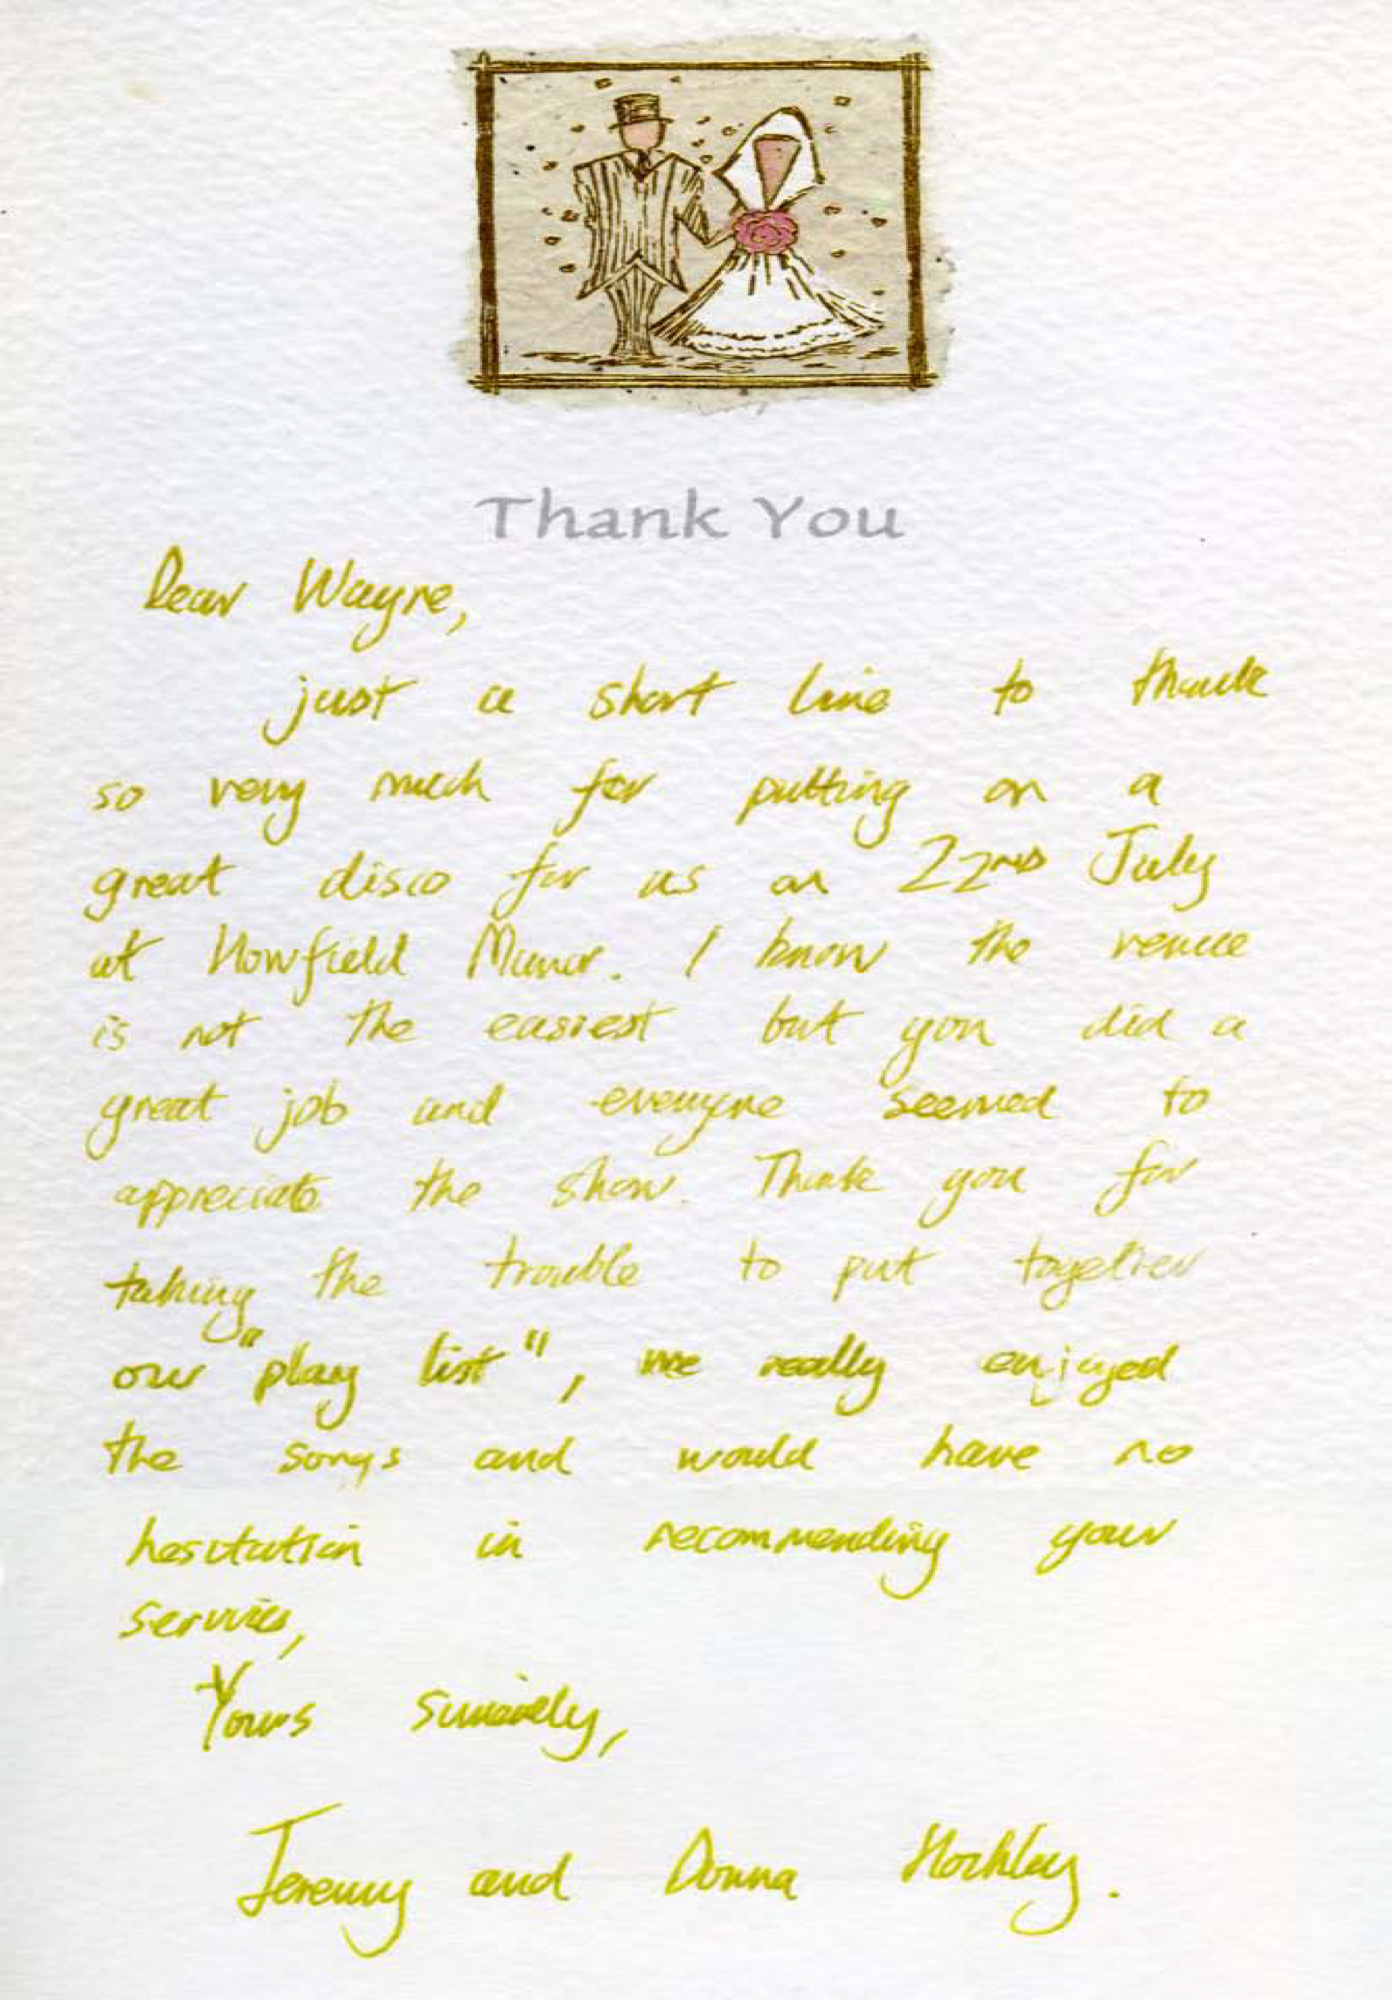 Thank You
Dear Wayne,
just a short line to thank
so very much for putting on a
great disco for us on 22ND July
at Howfield Manor. I know the venue
is not the easiest but you did a
great job and everyone seemed to
appreciate the show. Thank you for
taking the trouble to put together
our "play list", we really enjoyed
the songs and would have no
hesitation in recommending your
service,
Yours sincerely,
Jeremy and Donna Hockley.